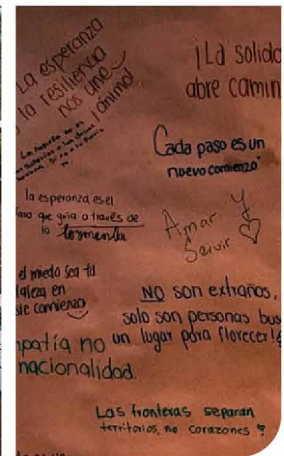 La esperanza
la resiliencia
nos une
¡ánimo!
¡La solida
abre camin
Cada paso es un
nuevo comienzo"
la esperanza es el
faro que guía a través de
la tormenta
Amar y
Servir
el miedo sea tu
aleza en
ste comienzo
NO son extraños,
solo son personas bus
un lugar para florecer!
patía no
nacionalidad.
Las fronteras separan
territorios, no corazones